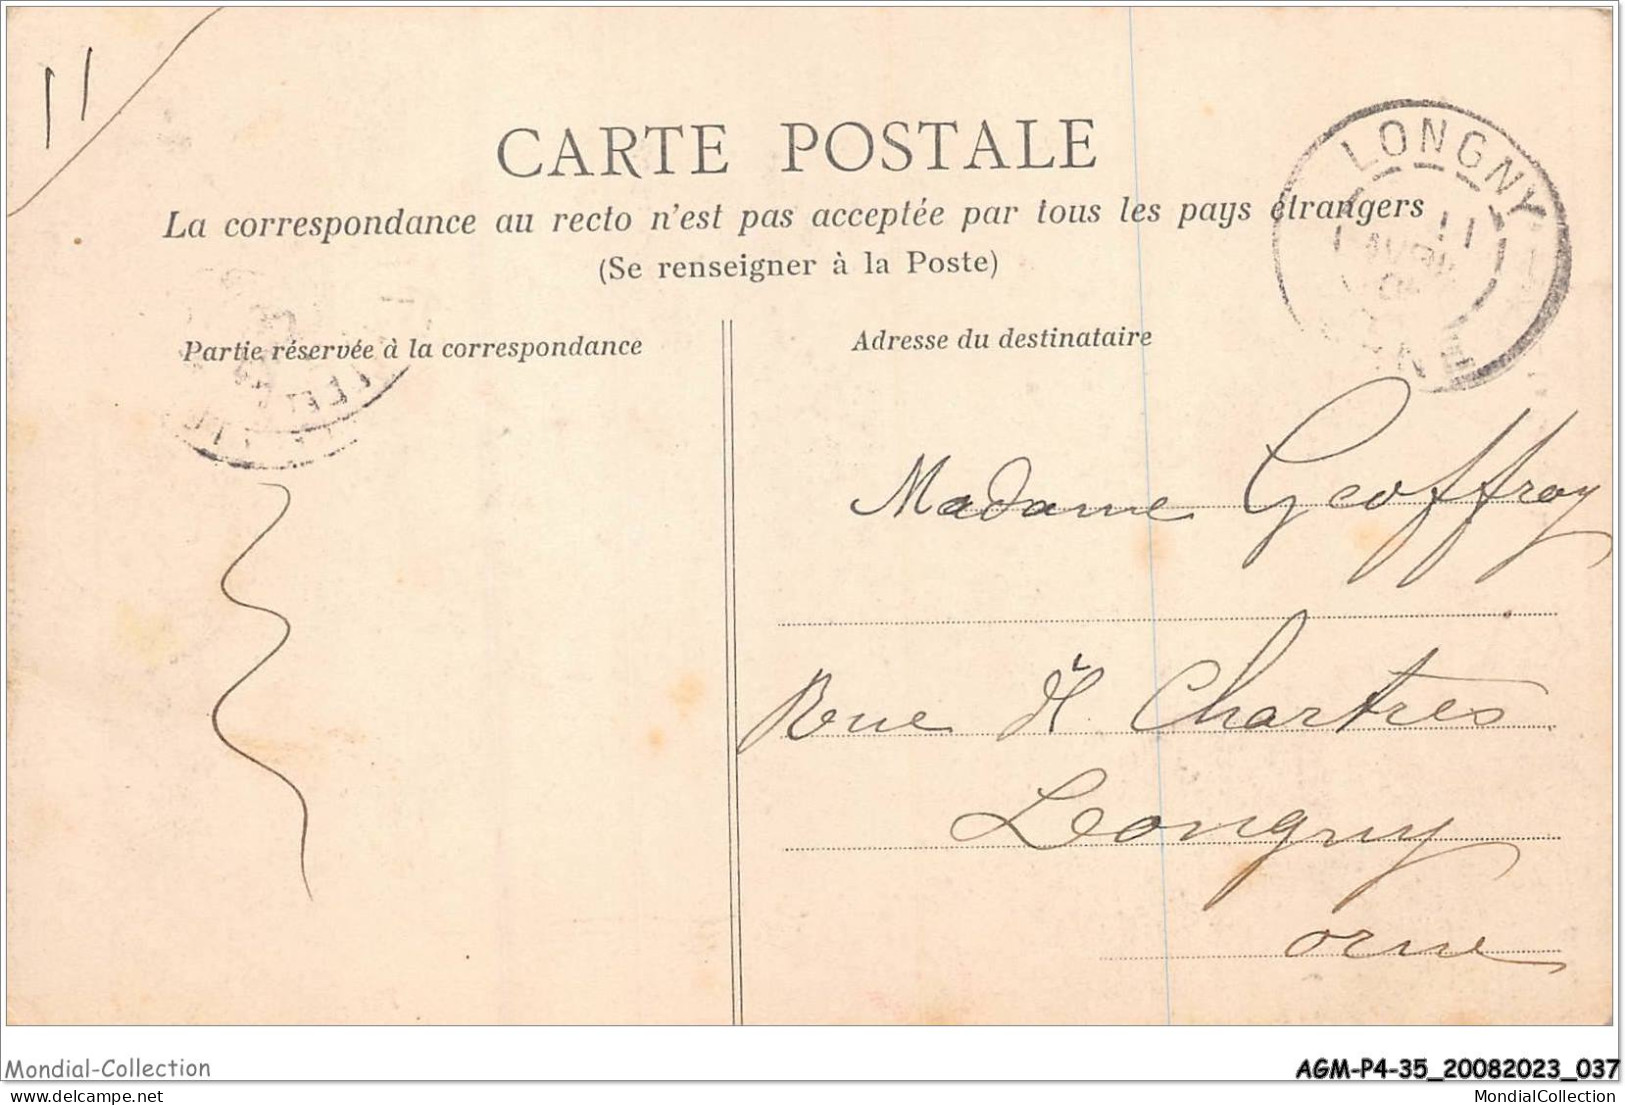 11
CARTE POSTALE
La correspondance au recto n'est pas acceptée par tous les pays étrangers
(Se renseigner à la Poste)
LONGNY
11
AVRIL
Partie réservée à la correspondance
Adresse du destinataire
Madame Geoffroy
Rue de Chartres
Longny
orne
Mondial-Collection
AGM-P4-35_20082023_037
MondialCollection
MondialCollection